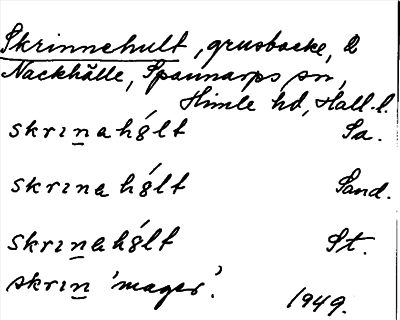 Skrinnehult, grusbacke, å
Nackhälle, Spannarps sn,
Himle hd, Hall. l.
skrɪnahólt Sa.
skrɪnahólt Sand.
skrɪnahólt St.
skrɪn 'mager'.
1949.